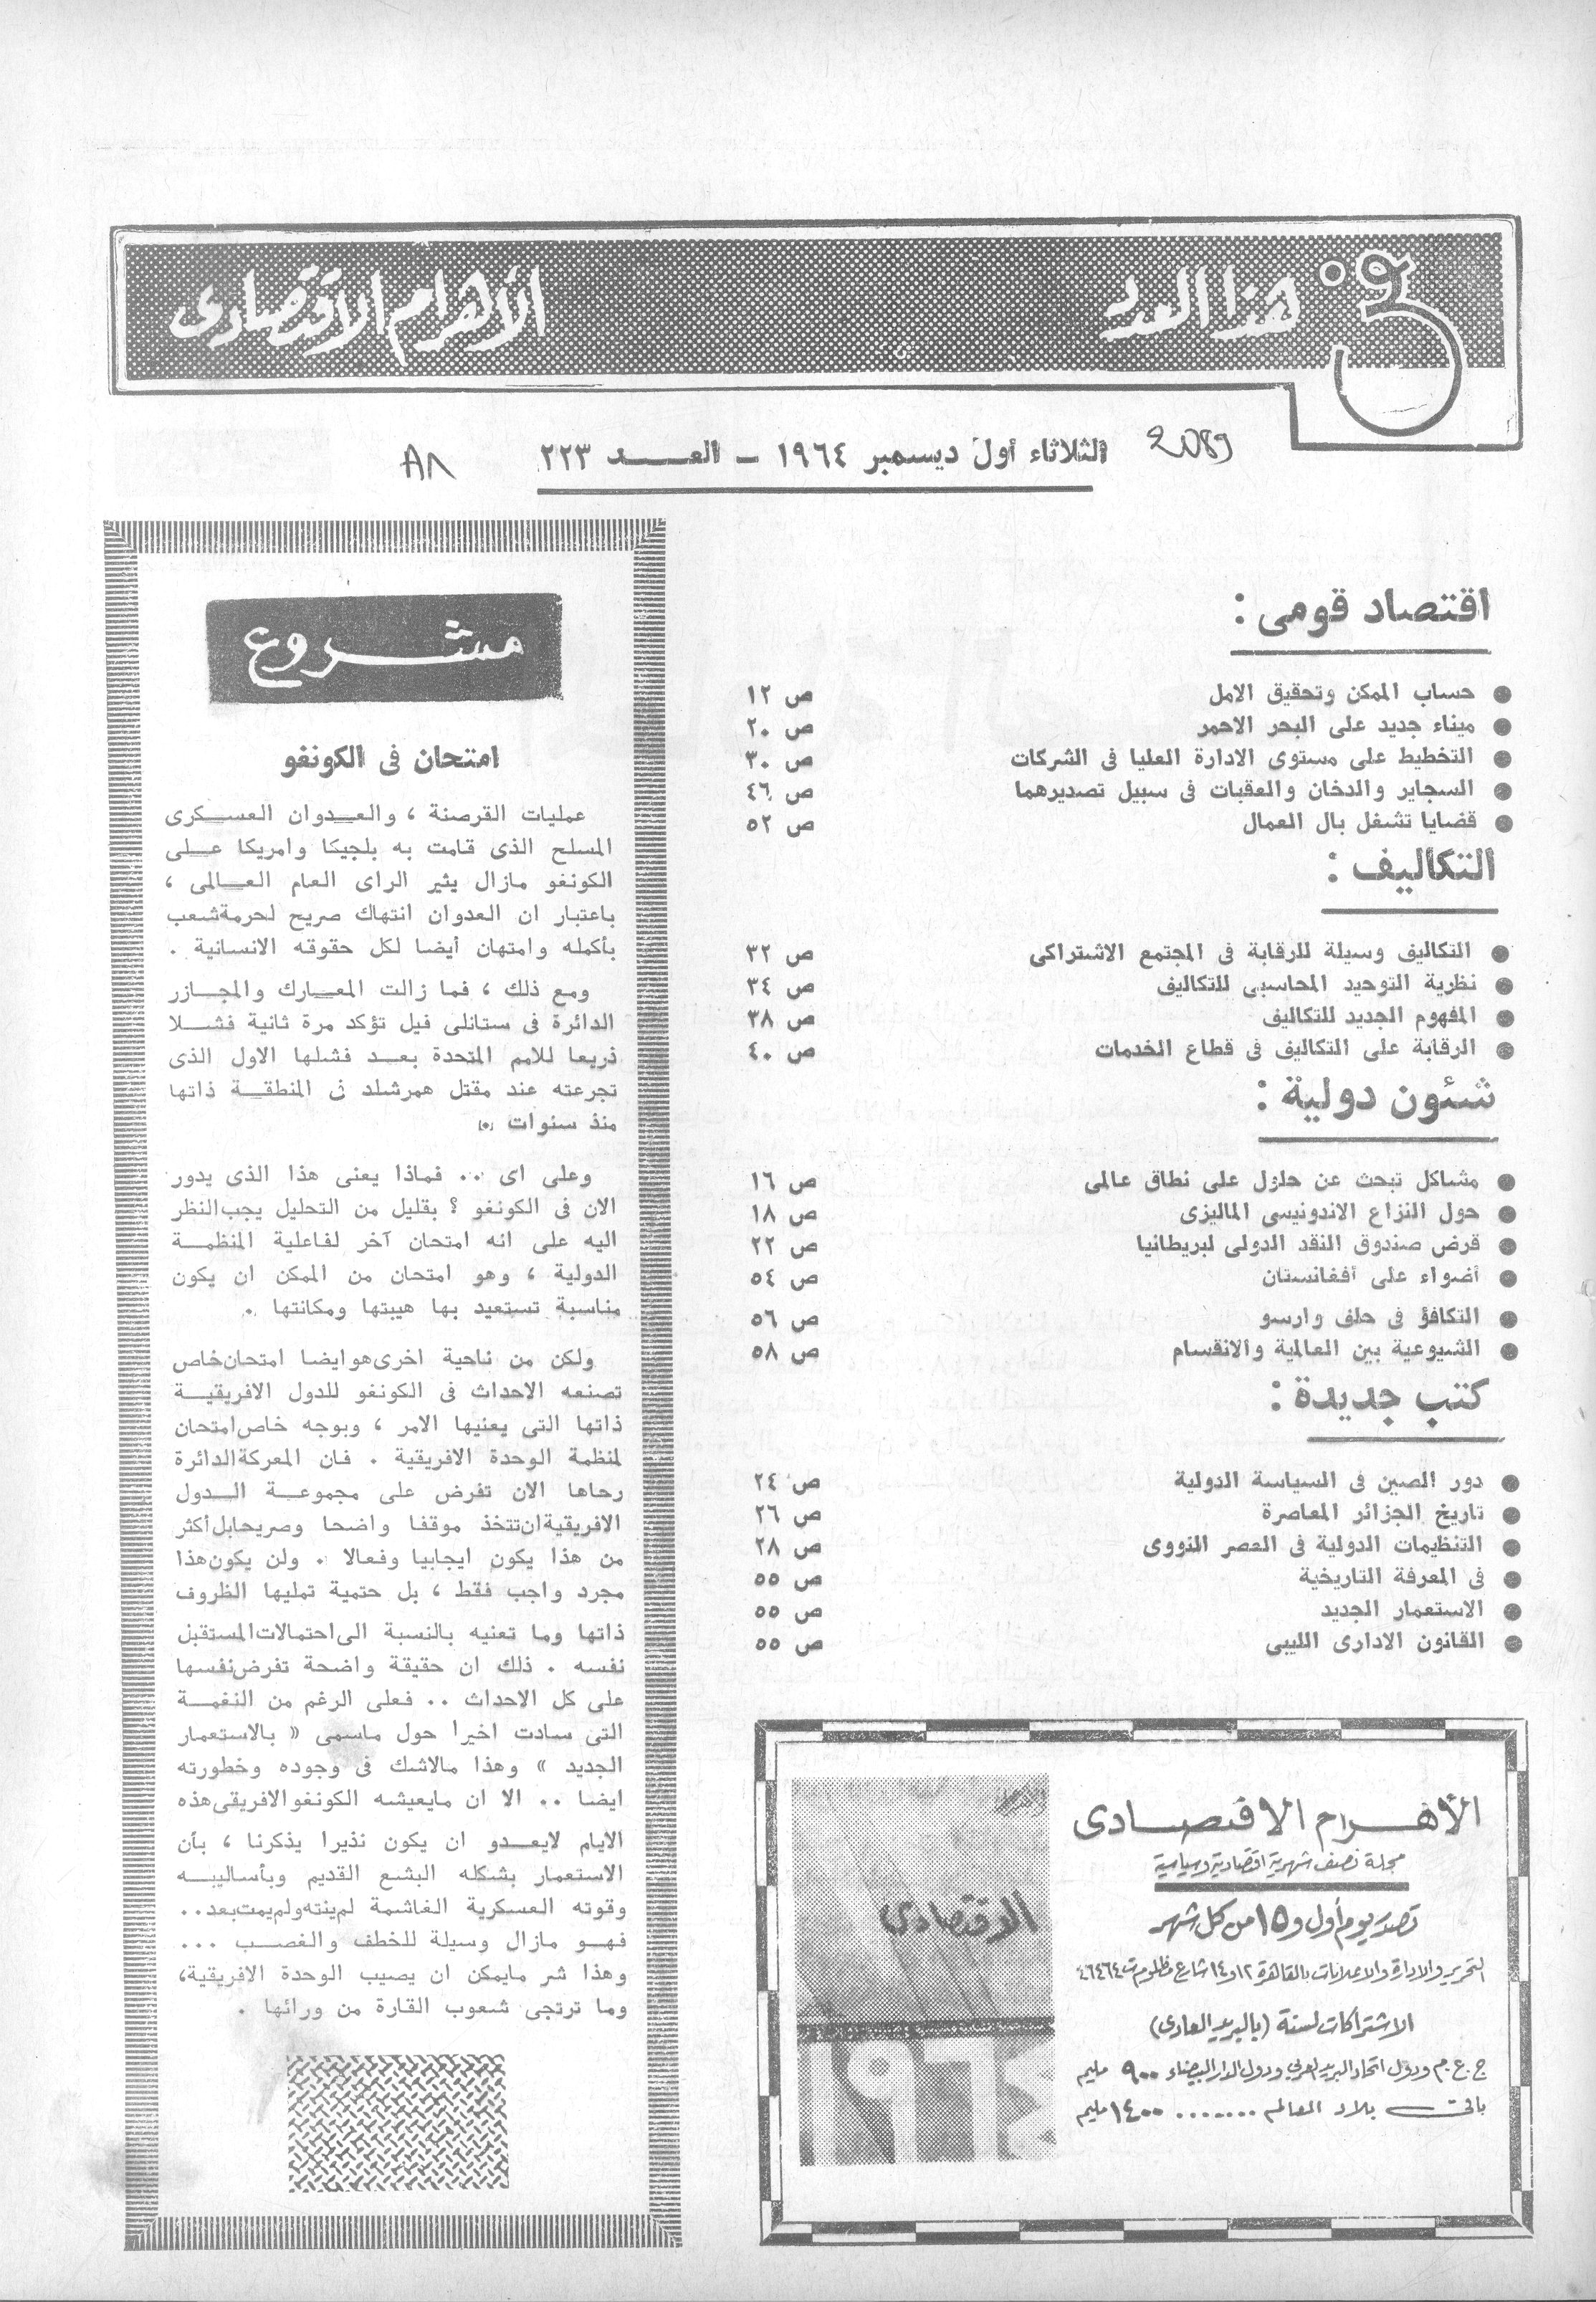 في هذا العدد
الأهرام الاقتصادى
2089
الثلاثاء أول ديسمبر ١٩٦٤ – العــــدد ٢٢٣
٨٨
اقتصاد قومى :
● حساب الممكن وتحقيق الامل ص ١٢
● ميناء جديد على البحر الاحمر ص ٢٠
● التخطيط على مستوى الادارة العليا فى الشركات ص ٣٠
● السجاير والدخان والعقبات فى سبيل تصديرهما ص ٤٦
● قضايا تشغل بال العمال ص ٥٢
التكاليف :
● التكاليف وسيلة للرقابة فى المجتمع الاشتراكى ص ٣٢
● نظرية التوحيد المحاسبى للتكاليف ص ٣٤
● المفهوم الجديد للتكاليف ص ٣٨
● الرقابة على التكاليف فى قطاع الخدمات ص ٤٠
شئون دولية :
● مشاكل تبحث عن حلول على نطاق عالمى ص ١٦
● حول النزاع الاندونيسى الماليزى ص ١٨
● قرض صندوق النقد الدولى لبريطانيا ص ٢٢
● أضواء على أفغانستان ص ٥٤
● التكافؤ فى حلف وارسو ص ٥٦
● الشيوعية بين العالمية والانقسام ص ٥٨
كتب جديدة :
● دور الصين فى السياسة الدولية ص ٢٤
● تاريخ الجزائر المعاصرة ص ٢٦
● التنظيمات الدولية فى العصر النووى ص ٢٨
● فى المعرفة التاريخية ص ٥٥
● الاستعمار الجديد ص ٥٥
● القانون الادارى الليبى ص ٥٥
الأهـــرام الاقتصــادى
مجلة نصف شهرية اقتصادية وسياسية
تصدر يوم أول و ١٥ من كل شهر
التحرير والادارة والاعلانات بالقاهرة ١٢ و ١٤ شارع مظلوم ت ٤٦٤٦٤
الاشتراكات لسنة (بالبريد العادى)
ج.ع.م ودول اتحاد البريد العربى ودول الدار البيضاء ٩٠٠ مليم
باقى بلاد العالم ....... ١٤٠٠ مليم
الاقتصادى
١٩٦٤
مشـــروع
امتحان فى الكونغو
عمليات القرصنة ، والعــدوان العســكرى
المسلح الذى قامت به بلجيكا وامريكا عــلى
الكونغو مازال يثير الراى العام العــالمى ،
باعتبار ان العدوان انتهاك صريح لحرمة شعب
بأكمله وامتهان أيضا لكل حقوقه الانسانية .
ومع ذلك ، فما زالت المعــارك والمجــازر
الدائرة فى ستانلى فيل تؤكد مرة ثانية فشــلا
ذريعا للامم المتحدة بعــد فشلها الاول الذى
تجرعته عند مقتل همرشلد فى المنطقــة ذاتها
منذ سنوات .
وعلى اى .. فماذا يعنى هذا الذى يدور
الان فى الكونغو ؟ بقليل من التحليل يجب النظر
اليه على انه امتحان آخر لفاعلية المنظمــة
الدولية ، وهو امتحان من الممكن ان يكون
مناسبة تستعيد بها هيبتها ومكانتها .
ولكن من ناحية اخرى هو ايضا امتحان خاص
تصنعه الاحداث فى الكونغو للدول الافريقيــة
ذاتها التى يعنيها الامر ، وبوجه خاص امتحان
لمنظمة الوحدة الافريقية . فان المعركة الدائرة
رحاها الان تفرض على مجموعــة الــدول
الافريقية ان تتخذ موقفا واضحا وصريحا بل أكثر
من هذا يكون ايجابيا وفعالا . ولن يكون هذا
مجرد واجب فقط ، بل حتمية تمليها الظروف
ذاتها وما تعنيه بالنسبة الى احتمالات المستقبل
نفسه . ذلك ان حقيقة واضحة تفرض نفسها
على كل الاحداث .. فعلى الرغم من النغمــة
التى سادت اخيرا حول ماسمى « بالاستعمار
الجديد » وهذا مالاشك فى وجوده وخطورته
ايضا .. الا ان مايعيشه الكونغو الافريقى هذه
الايام لايعــدو ان يكون نذيرا يذكرنا ، بأن
الاستعمار بشكله البشع القديم وبأساليبــه
وقوته العسكرية الغاشمة لم ينته ولم يمت بعد ..
فهــو مازال وسيلة للخطف والغصــب ...
وهذا شر مايمكن ان يصيب الوحدة الافريقية،
وما ترتجى شعوب القارة من ورائها .